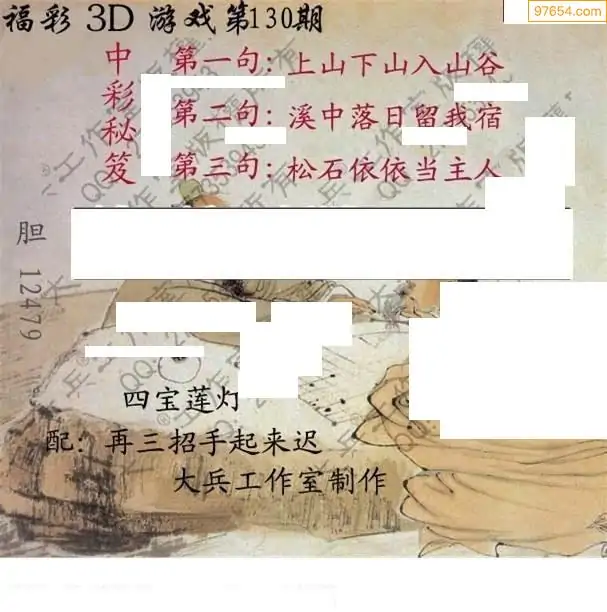 97654.com
福彩 3D 游戏第130期
中彩秘笈
第一句：上山下山入山谷
第二句：溪中落日留我宿
第三句：松石依依当主人
胆 12479
四宝莲灯
配：再三招手起来迟
大兵工作室制作